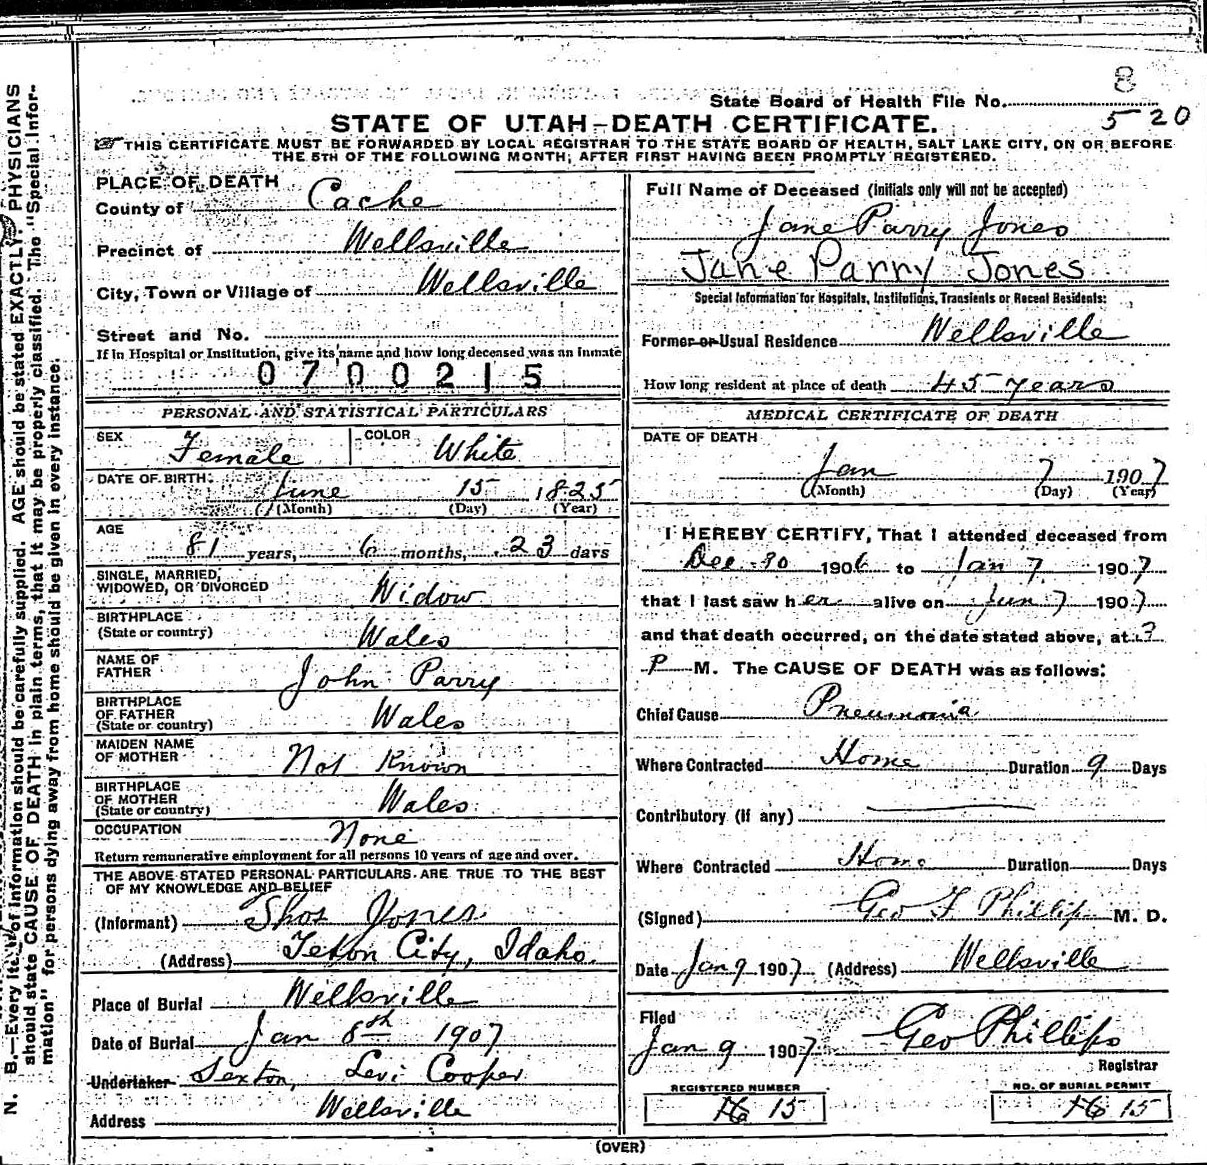 8
State Board of Health File No. 520
STATE OF UTAH-DEATH CERTIFICATE.
THIS CERTIFICATE MUST BE FORWARDED BY LOCAL REGISTRAR TO THE STATE BOARD OF HEALTH, SALT LAKE CITY, ON OR BEFORE
THE 5TH OF THE FOLLOWING MONTH; AFTER FIRST HAVING BEEN PROMPTLY REGISTERED.
PLACE OF DEATH
County of Cache
Precinct of Wellsville
City, Town or Village of Wellsville
Street and No.
If in Hospital or Institution, give its name and how long deceased was an Inmate
0700215
PERSONAL AND STATISTICAL PARTICULARS
SEX Female COLOR White
DATE OF BIRTH: June 15 1825
(Month) (Day) (Year)
AGE
81 years, 6 months, 23 days
SINGLE, MARRIED,
WIDOWED, OR DIVORCED Widow
BIRTHPLACE
(State or country) Wales
NAME OF
FATHER John Parry
BIRTHPLACE
OF FATHER
(State or country) Wales
MAIDEN NAME
OF MOTHER Not Known
BIRTHPLACE
OF MOTHER
(State or country) Wales
OCCUPATION None
Return remunerative employment for all persons 10 years of age and over.
THE ABOVE STATED PERSONAL PARTICULARS ARE TRUE TO THE BEST
OF MY KNOWLEDGE AND BELIEF
(Informant) Thos Jones
(Address) Teton City, Idaho.
Place of Burial Wellsville
Date of Burial Jan 8th 1907
Undertaker Sexton, Levi Cooper
Address Wellsville
Full Name of Deceased (initials only will not be accepted)
Jane Parry Jones
Jane Parry Jones
Special Information for Hospitals, Institutions, Transients or Recent Residents:
Former or Usual Residence Wellsville
How long resident at place of death 45 years
MEDICAL CERTIFICATE OF DEATH
DATE OF DEATH
Jan 7 1907
(Month) (Day) (Year)
I HEREBY CERTIFY, That I attended deceased from
Dec 30 1906 to Jan 7 1907
that I last saw her alive on Jan 7 1907
and that death occurred, on the date stated above, at
P M. The CAUSE OF DEATH was as follows:
Chief Cause Pneumonia
Where Contracted Home Duration 9 Days
Contributory (if any)
Where Contracted Home Duration Days
(Signed) Geo F Phillips M. D.
Date Jan 9 1907 (Address) Wellsville
Filed
Jan 9 1907 Geo Phillips
Registrar
REGISTERED NUMBER
16 15
NO. OF BURIAL PERMIT
16 15
(OVER)
N. B.—Every item of information should be carefully supplied. AGE should be stated EXACTLY. PHYSICIANS
should state CAUSE OF DEATH in plain terms, that it may be properly classified. The "Special Infor-
mation" for persons dying away from home should be given in every instance.